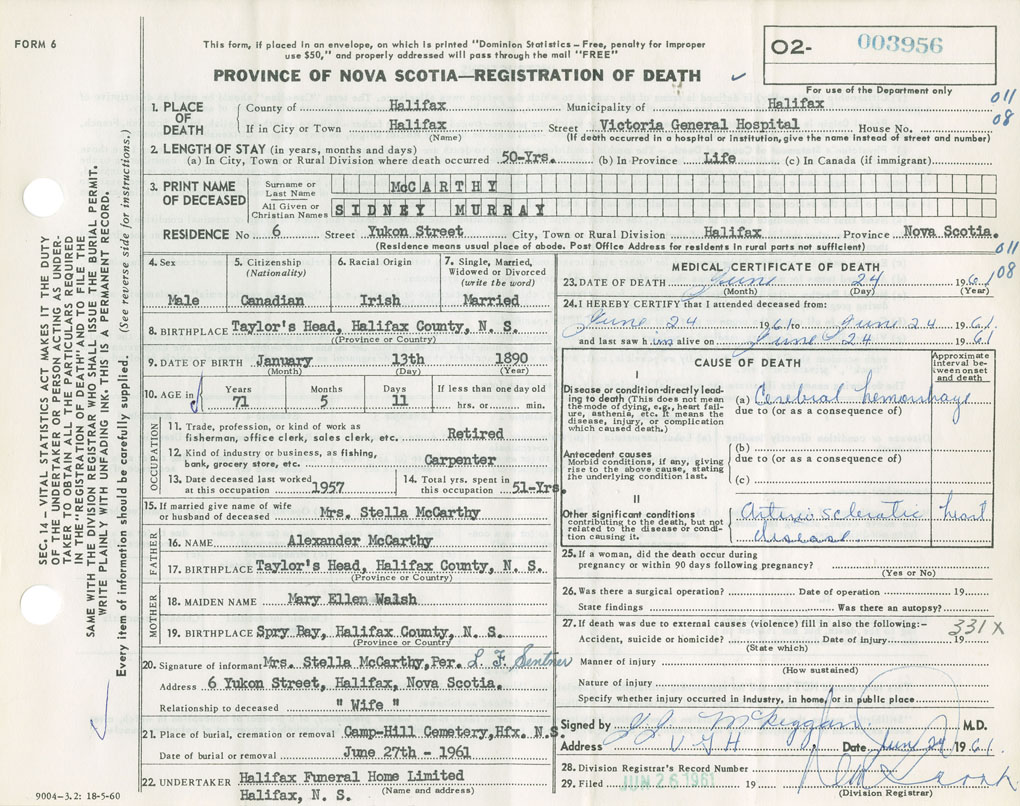 FORM 6
This form, if placed in an envelope, on which is printed "Dominion Statistics – Free, penalty for improper
use $50," and properly addressed will pass through the mail "FREE"
PROVINCE OF NOVA SCOTIA—REGISTRATION OF DEATH
O2- 003956
For use of the Department only
011
08
1. PLACE OF DEATH
County of Halifax Municipality of Halifax
If in City or Town Halifax Street Victoria General Hospital House No.
(Name) (If death occurred in a hospital or institution, give the name instead of street and number)
2. LENGTH OF STAY (in years, months and days)
(a) In City, Town or Rural Division where death occurred 50-Yrs. (b) In Province Life (c) In Canada (if immigrant)
3. PRINT NAME OF DECEASED
Surname or Last Name McCARTHY
All Given or Christian Names SIDNEY MURRAY
RESIDENCE No 6 Street Yukon Street City, Town or Rural Division Halifax Province Nova Scotia.
(Residence means usual place of abode. Post Office Address for residents in rural parts not sufficient)
011
08
4. Sex Male
5. Citizenship (Nationality) Canadian
6. Racial Origin Irish
7. Single, Married, Widowed or Divorced (write the word) Married
8. BIRTHPLACE Taylor's Head, Halifax County, N. S.
(Province or Country)
9. DATE OF BIRTH January 13th 1890
(Month) (Day) (Year)
10. AGE in Years 71 Months 5 Days 11 If less than one day old hrs. or min.
OCCUPATION
11. Trade, profession, or kind of work as
fisherman, office clerk, sales clerk, etc. Retired
12. Kind of industry or business, as fishing,
bank, grocery store, etc. Carpenter
13. Date deceased last worked
at this occupation 1957
14. Total yrs. spent in
this occupation 51-Yrs.
15. If married give name of wife
or husband of deceased Mrs. Stella McCarthy
FATHER
16. NAME Alexander McCarthy
17. BIRTHPLACE Taylor's Head, Halifax County, N. S.
(Province or Country)
MOTHER
18. MAIDEN NAME Mary Ellen Walsh
19. BIRTHPLACE Spry Bay, Halifax County, N. S.
(Province or Country)
20. Signature of informant Mrs. Stella McCarthy,Per. L. F. Sentner
Address 6 Yukon Street, Halifax, Nova Scotia.
Relationship to deceased " Wife "
21. Place of burial, cremation or removal Camp-Hill Cemetery,Hfx. N.S.
Date of burial or removal June 27th - 1961
22. UNDERTAKER Halifax Funeral Home Limited
(Name and address)
Halifax, N. S.
9004-3.2: 18-5-60
MEDICAL CERTIFICATE OF DEATH
23. DATE OF DEATH June 24 1961
(Month) (Day) (Year)
24. I HEREBY CERTIFY that I attended deceased from:
June 24 1961 to June 24 1961.
and last saw him alive on June 24 1961
CAUSE OF DEATH
Approximate interval between onset and death
I
Disease or condition directly lead-
ing to death (This does not mean
the mode of dying, e.g., heart fail-
ure, asthenia, etc. It means the
disease, injury, or complication
which caused death.)
(a) Cerebral hemorrhage
due to (or as a consequence of)
Antecedent causes
Morbid conditions, if any, giving
rise to the above cause, stating
the underlying condition last.
(b)
due to (or as a consequence of)
(c)
II
Other significant conditions
contributing to the death, but not
related to the disease or condi-
tion causing it.
Arterio sclerotic heart
disease.
25. If a woman, did the death occur during
pregnancy or within 90 days following pregnancy?
(Yes or No)
26. Was there a surgical operation? Date of operation 19
State findings Was there an autopsy?
27. If death was due to external causes (violence) fill in also the following:-
331 X
Accident, suicide or homicide? Date of injury 19
(State which)
Manner of injury
(How sustained)
Nature of injury
Specify whether injury occurred in industry, in home, or in public place
Signed by McKeggan M.D.
Address VGH Date June 24 1961.
28. Division Registrar's Record Number
29. Filed JUN 26 1961 19
(Division Registrar)
SEC. 14 – VITAL STATISTICS ACT MAKES IT THE DUTY
OF THE UNDERTAKER OR PERSON ACTING AS UNDER-
TAKER TO OBTAIN ALL THE PARTICULARS REQUIRED
IN THE "REGISTRATION OF DEATH" AND TO FILE THE
SAME WITH THE DIVISION REGISTRAR WHO SHALL ISSUE THE BURIAL PERMIT.
WRITE PLAINLY WITH UNFADING INK. THIS IS A PERMANENT RECORD.
Every item of information should be carefully supplied. (See reverse side for instructions.)